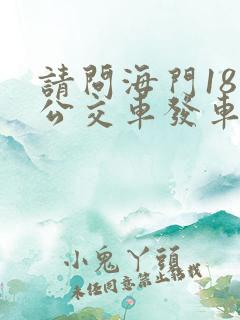 請問海門18
公交車發車
小鬼丫頭
未经同意禁止转载